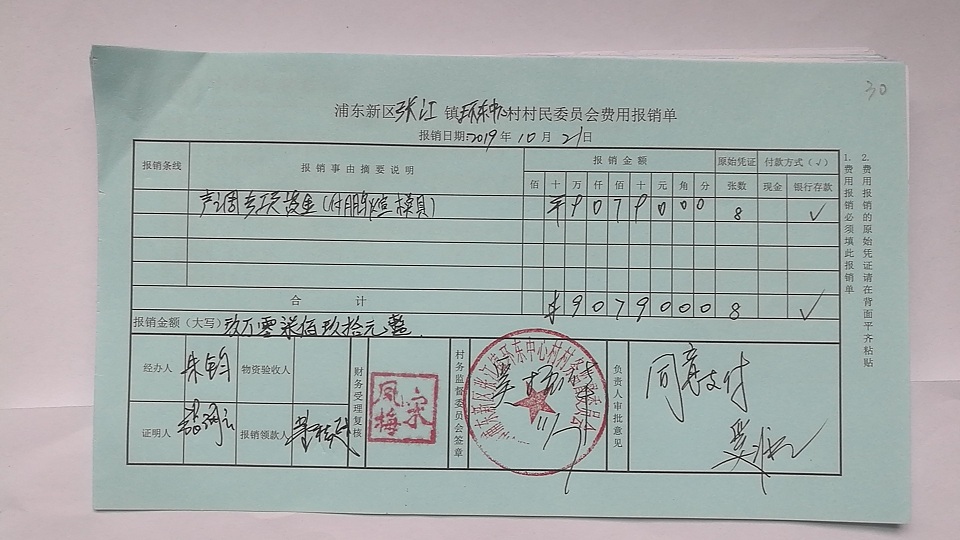 30
浦东新区张江镇环东中心村村民委员会费用报销单
报销日期:2019年10月21日
报销条线 报销事由摘要说明 报销金额 原始凭证 付款方式(√)
佰 十 万 仟 佰 十 元 角 分 张数 现金 银行存款
¥ 9 0 7 9 0 0 0 8 √
合计 ¥ 9 0 7 9 0 0 0 8 √
报销金额(大写) 玖万零柒佰玖拾元整
经办人 朱钧 物资验收人
证明人 报销领款人
财务受理复核
宋凤梅
村务监督委员会签章
浦东新区张江镇环东中心村村务监督委员会
负责人审批意见
同意支付
1.费用报销必须填此报销单
2.费用报销的原始凭证请在背面平齐粘贴